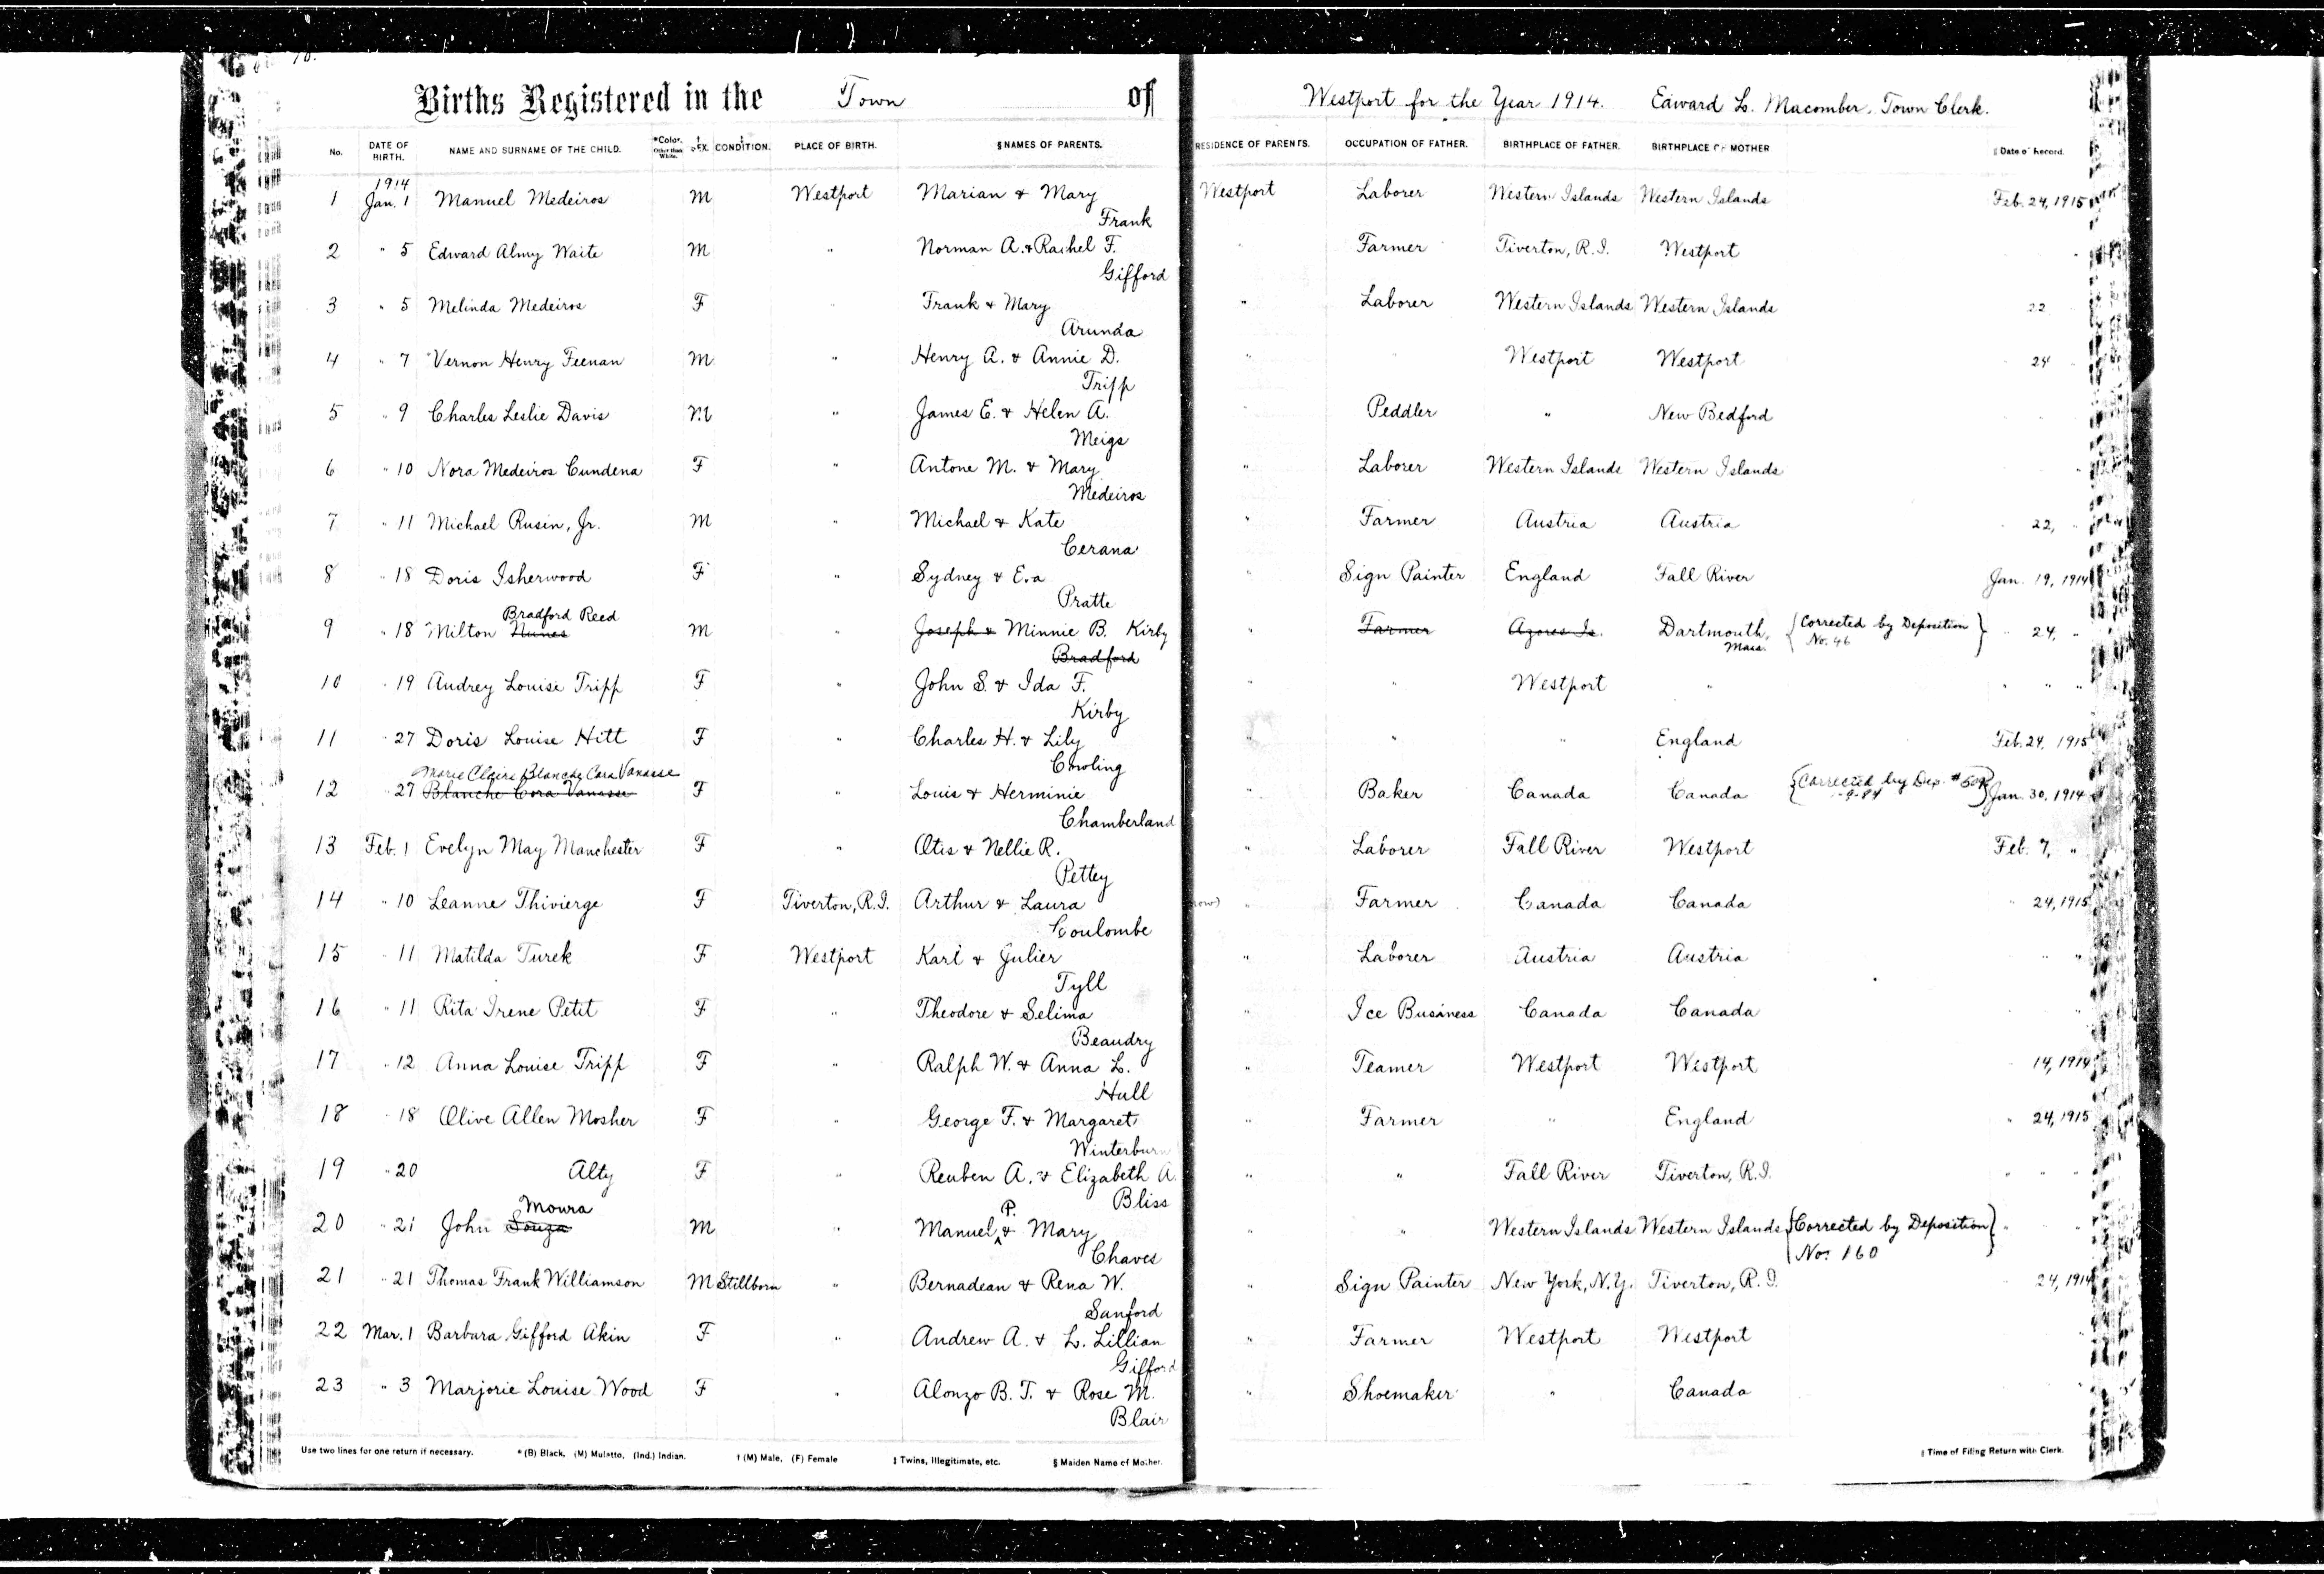 Births Registered in the Town of Westport for the Year 1914. Edward L. Macomber, Town Clerk.
No. DATE OF BIRTH. NAME AND SURNAME OF THE CHILD. *Color. Other than White. † SEX. ‡ CONDITION. PLACE OF BIRTH. §NAMES OF PARENTS. RESIDENCE OF PARENTS. OCCUPATION OF FATHER. BIRTHPLACE OF FATHER. BIRTHPLACE OF MOTHER ‖ Date of Record.
1914
1 Jan. 1 Manuel Medeiros M Westport Marian & Mary Westport Laborer Western Islands Western Islands Feb. 24, 1915
Frank
2 " 5 Edward Almy Waite M " Norman A. & Rachel F. " Farmer Tiverton, R.I. Westport
Gifford
3 " 5 Melinda Medeiros F " Frank & Mary " Laborer Western Islands Western Islands 22
Arunda
4 " 7 Vernon Henry Feenan M " Henry A. & Annie D. " " Westport Westport 24
Tripp
5 " 9 Charles Leslie Davis M " James E. & Helen A. " Peddler " New Bedford
Meigs
6 " 10 Nora Medeiros Cundena F " Antone M. & Mary " Laborer Western Islands Western Islands "
Medeiros
7 " 11 Michael Rusin, Jr. M " Michael & Kate " Farmer Austria Austria " 22, "
Cerana
8 " 18 Doris Isherwood F " Sydney & Eva " Sign Painter England Fall River Jan. 19, 1914
Pratte
Bradford Reed
9 " 18 Milton Nunes M Joseph & Minnie B. Kirby " Farmer Azores Is. Dartmouth, Mass. {Corrected by Deposition No. 46} " 24, "
Bradford
10 " 19 Audrey Louise Tripp F " John S. & Ida F. " " Westport " " " "
Kirby
11 " 27 Doris Louise Hitt F " Charles H. & Lily " " " England Feb. 24, 1915
Cowling
Marie Claire Blanche Cora Vanasse
12 " 27 Blanche Cora Vanasse F " Louis & Herminie " Baker Canada Canada {Corrected by Dep. # } Jan. 30, 1914
Chamberland
13 Feb. 1 Evelyn May Manchester F " Otis & Nellie R. " Laborer Fall River Westport Feb. 7, "
Pettey
14 " 10 Leanne Thivierge F Tiverton, R.I. Arthur & Laura " Farmer Canada Canada " 24, 1915
Coulombe
15 " 11 Matilda Turek F Westport Karl & Julier " Laborer Austria Austria " "
Tyll
16 " 11 Rita Irene Petit F " Theodore & Selima " Ice Business Canada Canada
Beaudry
17 " 12 Anna Louise Tripp F " Ralph W. & Anna L. " Teamer Westport Westport " 14, 1914
Hull
18 " 18 Olive Allen Mosher F " George F. & Margaret " Farmer " England " 24, 1915
Winterburn
19 " 20 Alty F " Reuben A. & Elizabeth A. " " Fall River Tiverton, R.I. " " "
Bliss
Moura P.
20 " 21 John Souza M " Manuel & Mary " " Western Islands Western Islands {Corrected by Deposition No. 160} " "
Chaves
21 " 21 Thomas Frank Williamson M Stillborn " Bernadean & Rena W. " Sign Painter New York, N.Y. Tiverton, R.I. " 24, 1914
Sanford
22 Mar. 1 Barbara Gifford Akin F " Andrew A. & L. Lillian " Farmer Westport Westport
Gifford
23 " 3 Marjorie Louise Wood F " Alonzo B. T. & Rose M. " Shoemaker " Canada
Blair
Use two lines for one return if necessary. * (B) Black, (M) Mulatto, (Ind.) Indian. † (M) Male, (F) Female ‡ Twins, Illegitimate, etc. § Maiden Name of Mother. ‖ Time of Filing Return with Clerk.